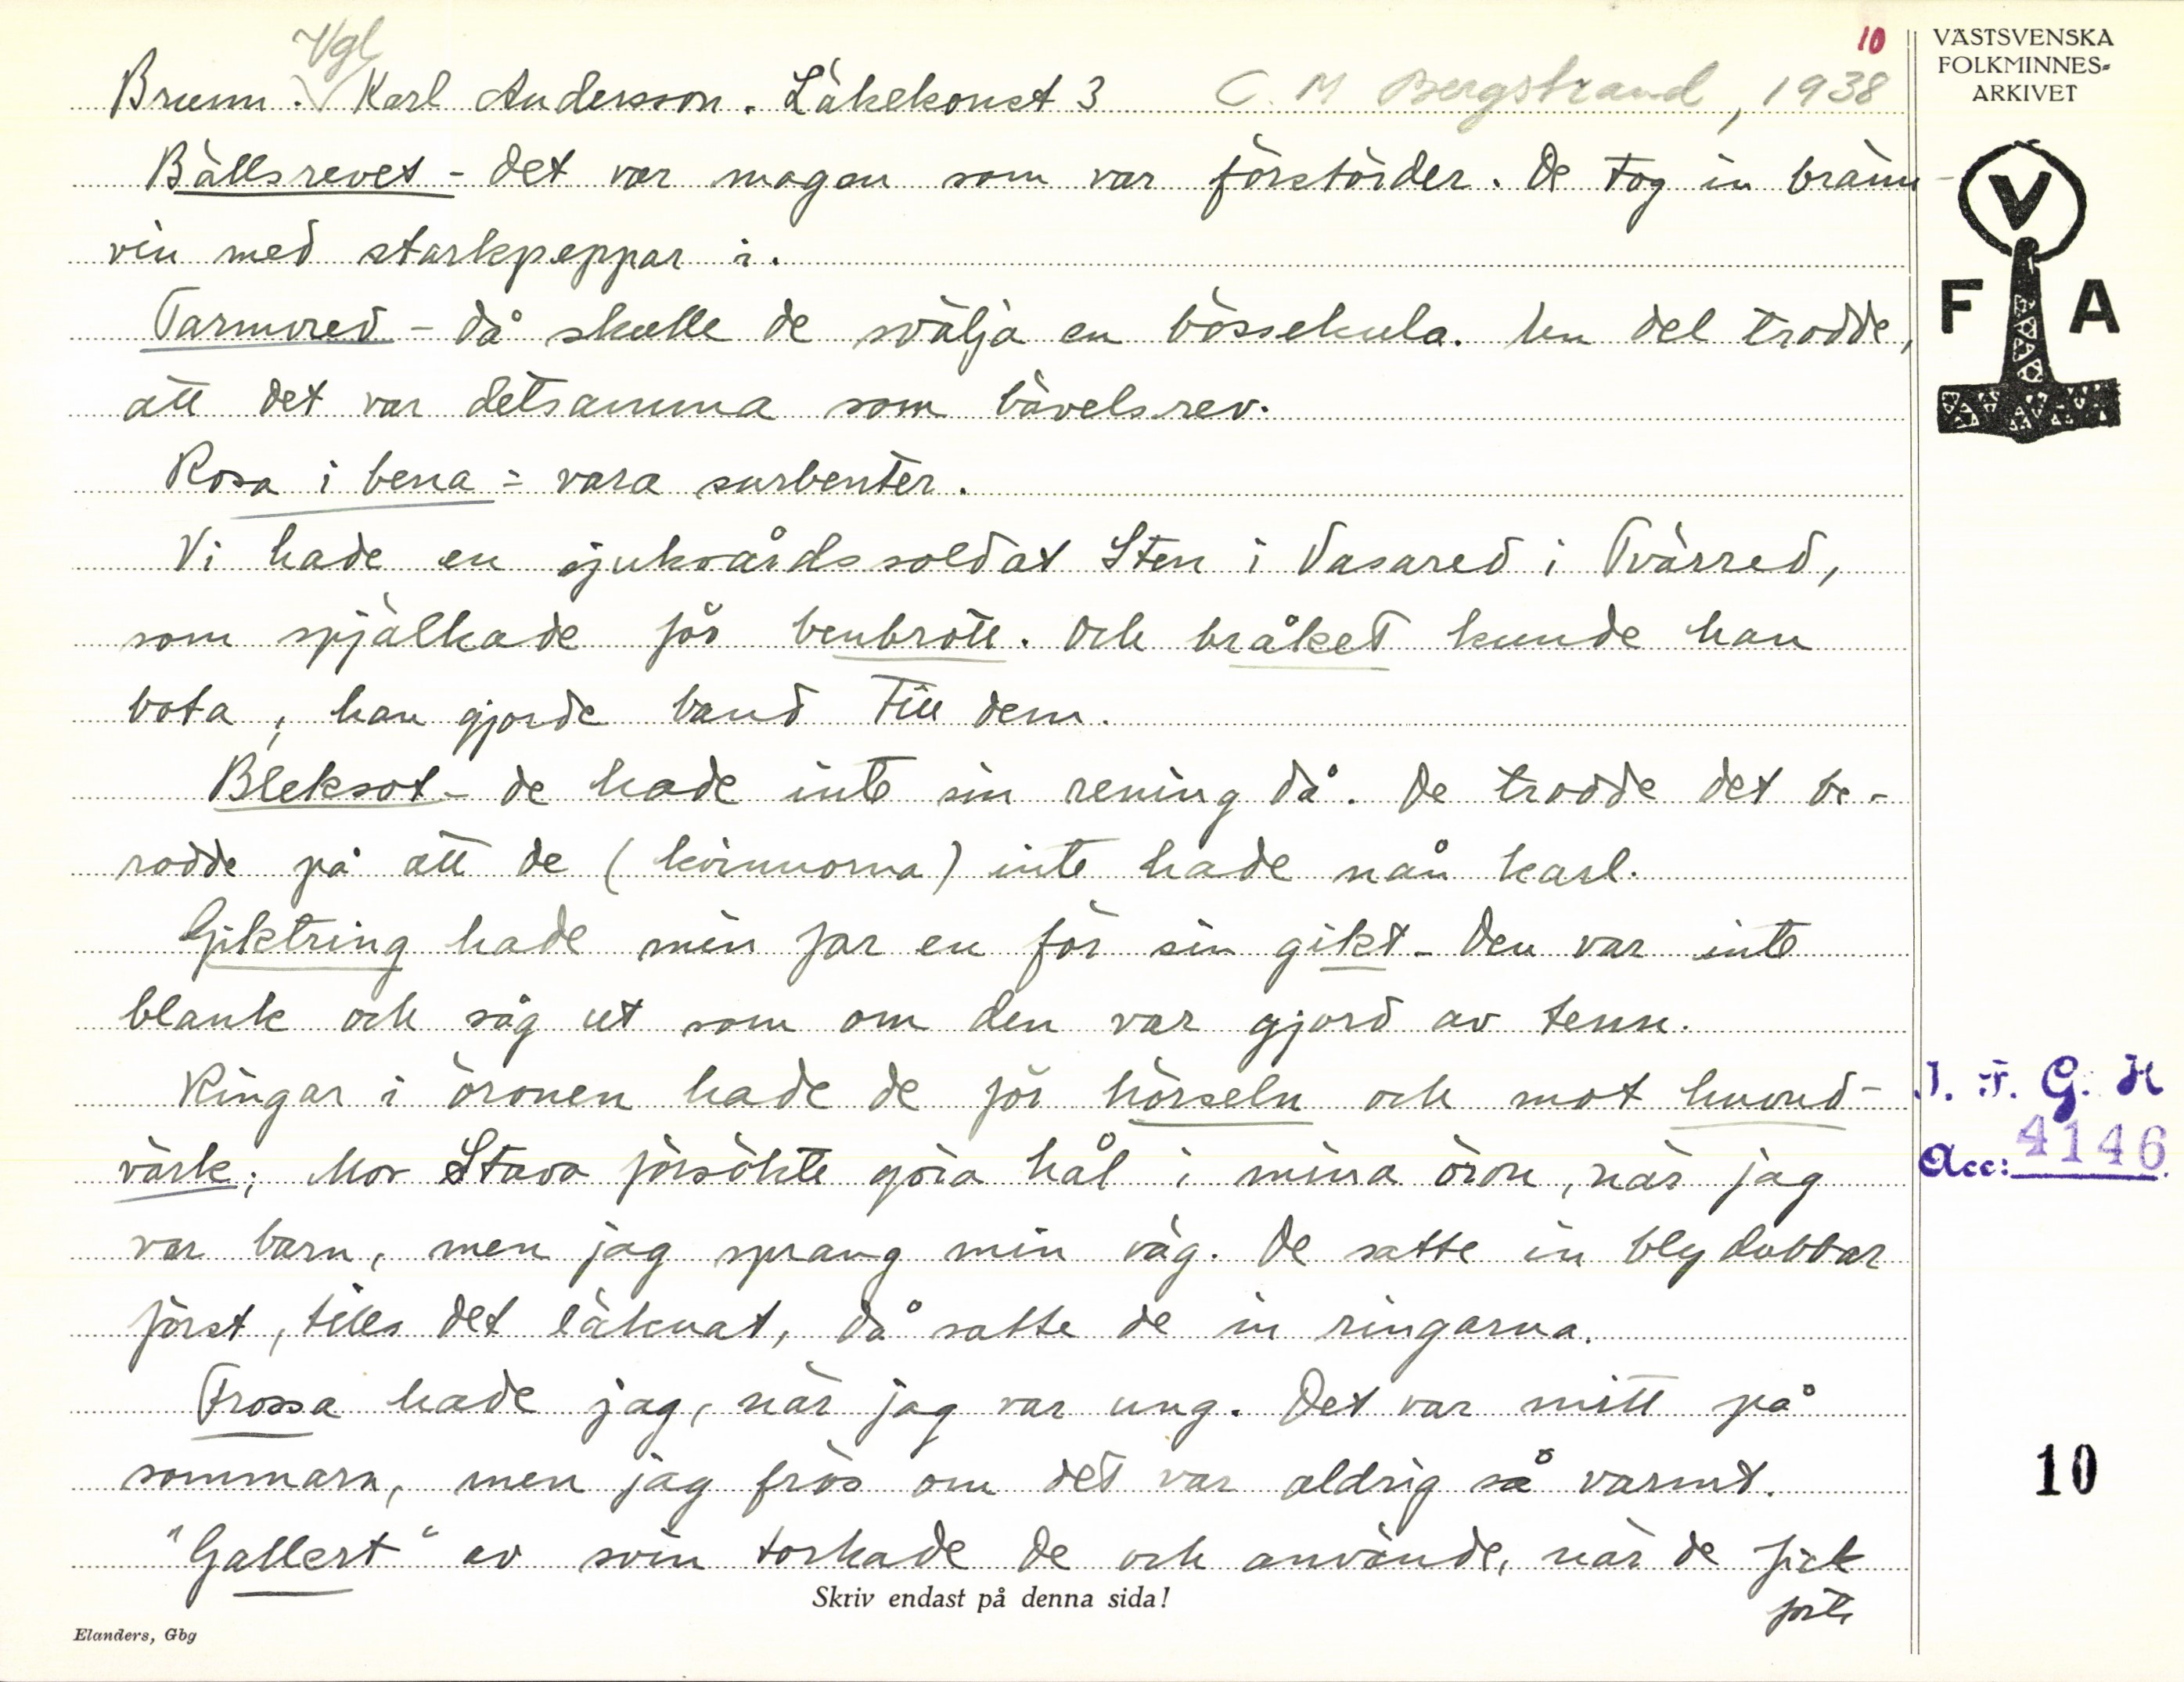 Vgl
10
Brunn. Karl Andersson. Läkekonst 3 C. M Bergstrand, 1938
VÄSTSVENSKA
FOLKMINNES-
ARKIVET
V
F A
Bällsrevet - det var magen som var förstörder. De tog in bränn-
vin med starkpeppar i.
Tarmvred - då skulle de svälja en bössekula. En del trodde,
att det var detsamma som bävelsrev.
Rosa i bena = vara surbenter.
Vi hade en sjukvårdssoldat Sten i Vasared i Tvärred,
som spjälkade för benbrott. Och bråket kunde han
bota, han gjorde band till dem.
Bleksot - de hade inte sin rening då. De trodde det be-
rodde på att de (kvinnorna) inte hade nån karl.
Giktring hade min far en för sin gikt - den var inte
blank och såg ut som om den var gjord av tenn.
Ringar i öronen hade de för hörseln och mot huvud-
värk; Mor Stava försökte göra hål i mina öron, när jag
var barn, men jag sprang min väg. De satte in blydubbar
först, tills det läknat, då satte de in ringarna.
Frossa hade jag, när jag var ung. Det var mitt på
sommarn, men jag frös om det var aldrig så varmt.
"Gallert" av svin torkade de och använde, när de fick
I. F. G. H
Acc: 4146.
10
Skriv endast på denna sida!
Elanders, Gbg